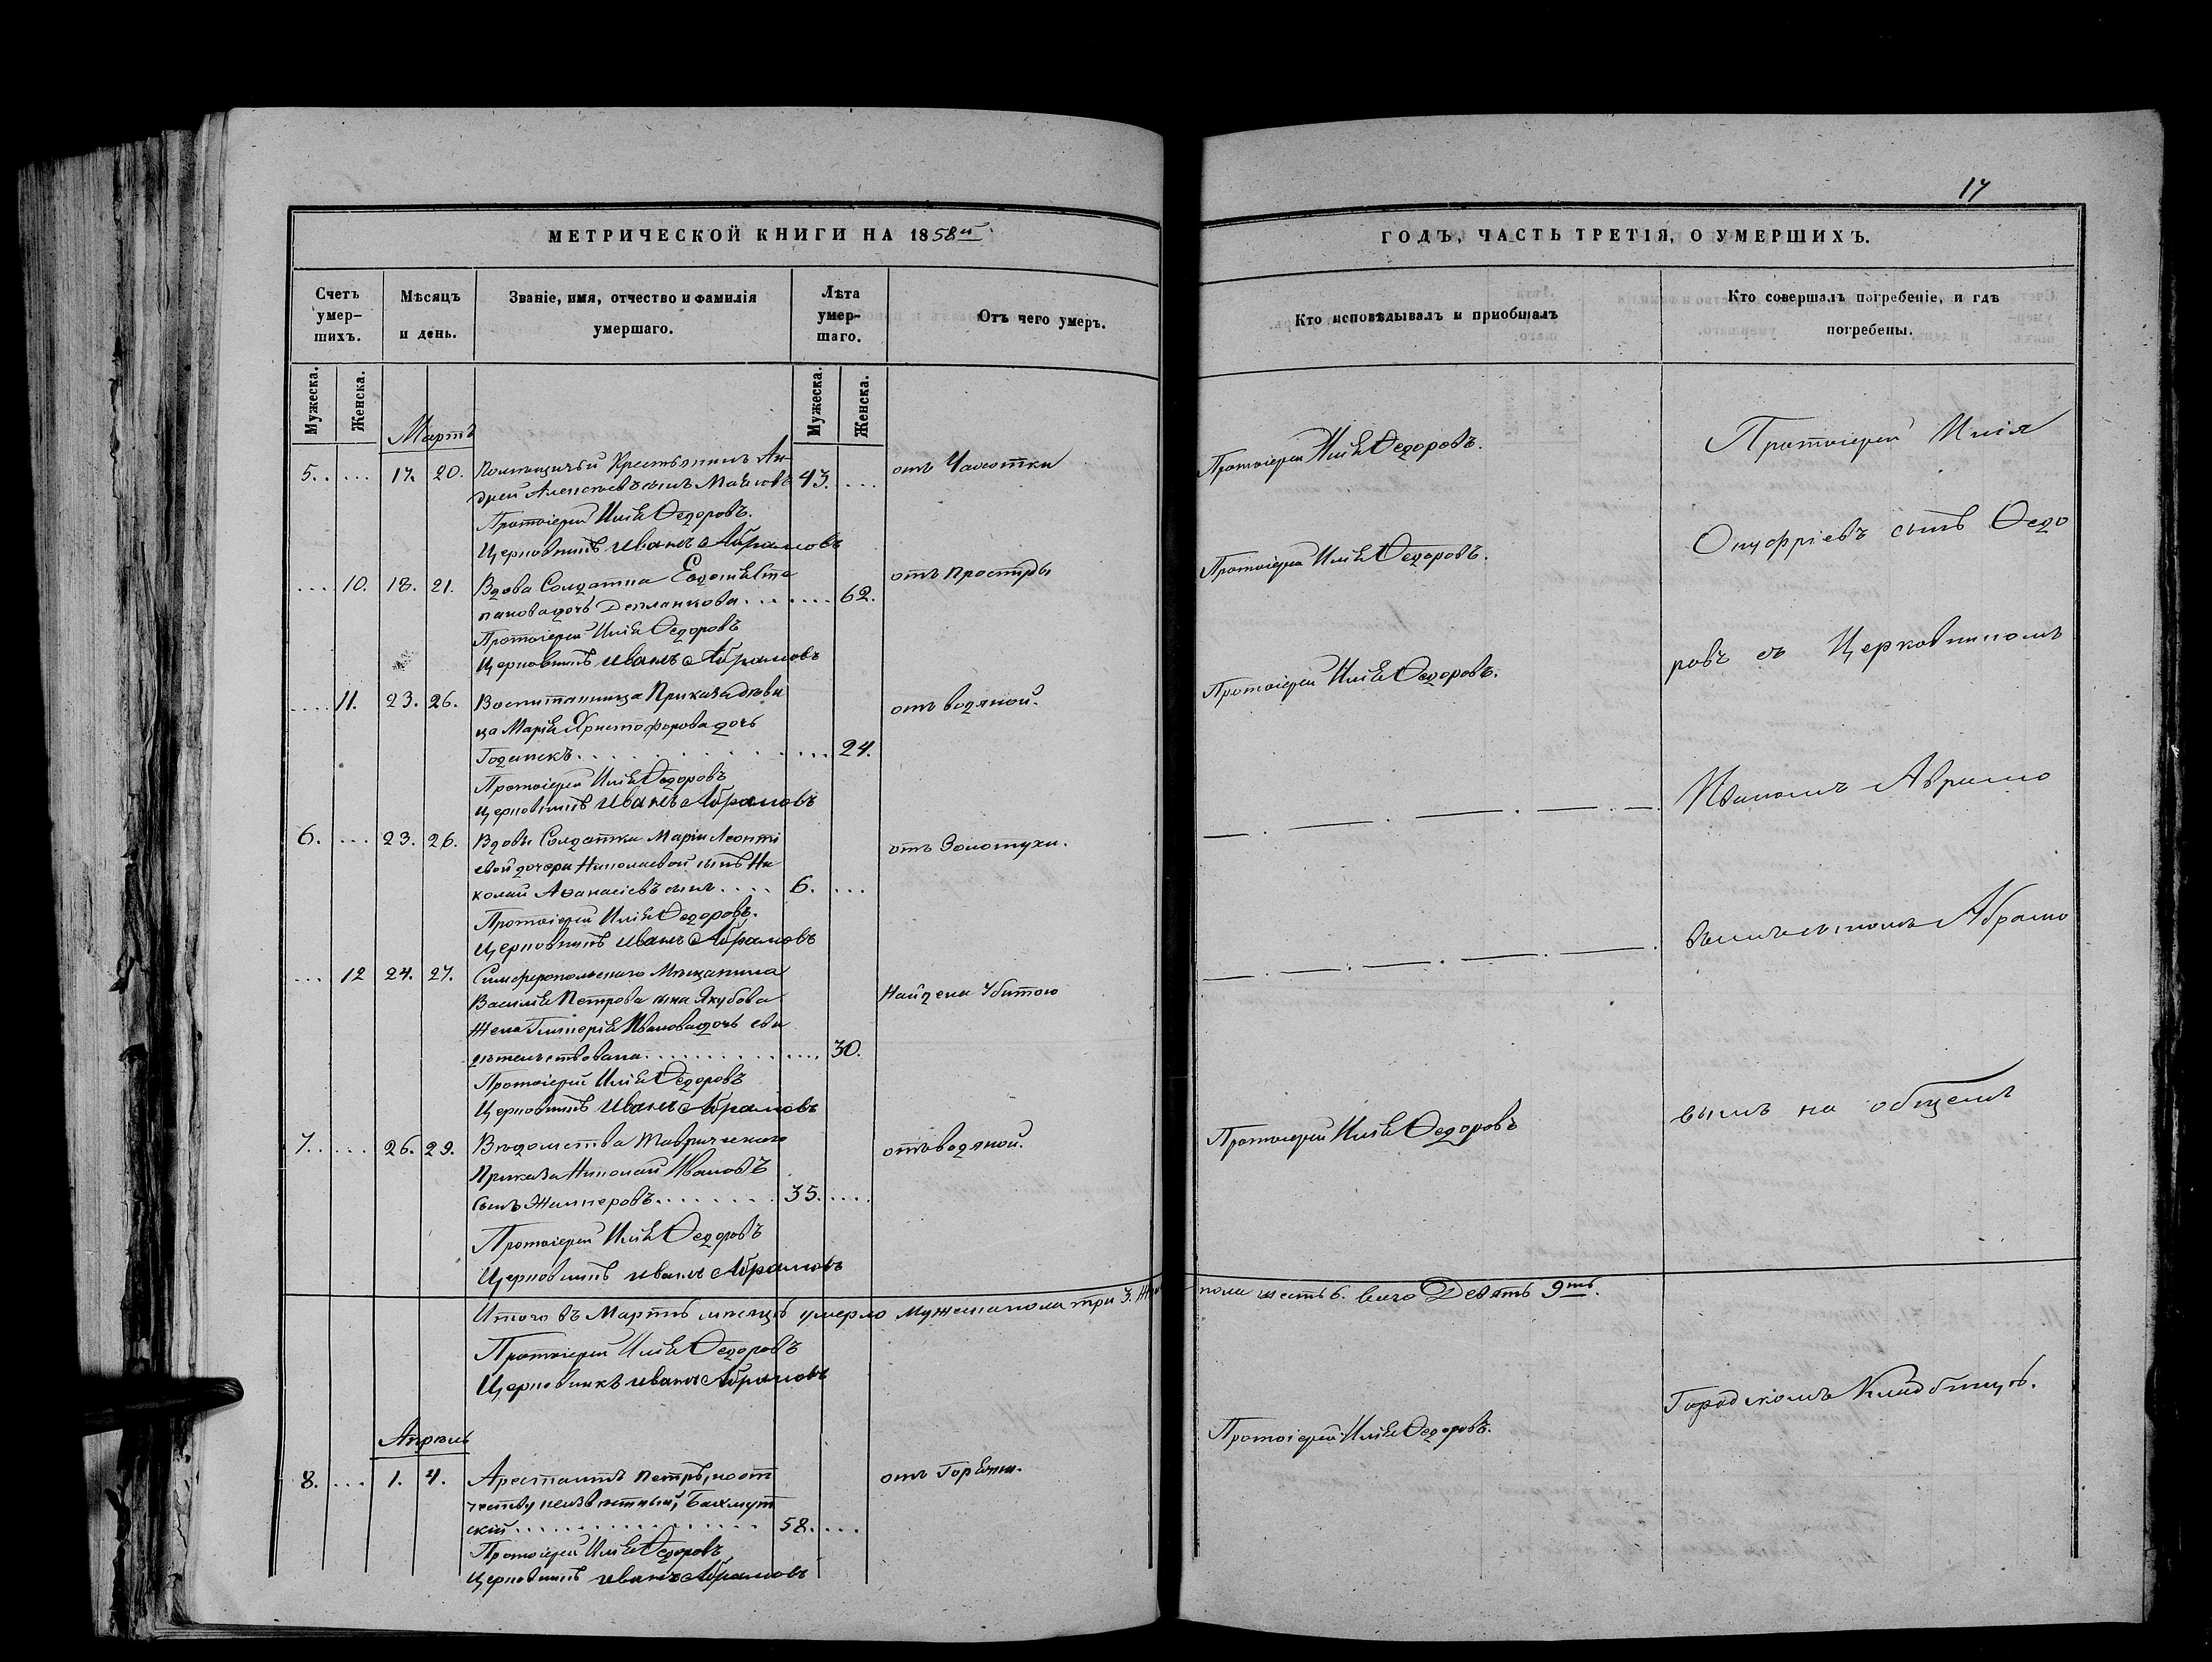 МЕТРИЧЕСКОЙ КНИГИ НА 1858й
Счетъ умер-шихъ.
Мѣсяцъ и день.
Званіе, имя, отчество и фамилія умершаго.
Лѣта умер-шаго.
Отъ чего умеръ.
Мужеска.
Женска.
Мужеска.
Женска.
Мартъ
5. 17. 20. Помѣщичьй Крестьянинъ Ан- отъ Чахотки
дрей Алексѣевъ сынъ 43.
Протоіерей Илія Ѳедоровъ.
Церковникъ Иванъ Абрамовъ
10. 18. 21. Вдова Солдатка Евдокія Сте отъ Простуды
панова дочь 62.
Протоіерей Илія Ѳедоровъ
Церковникъ Иванъ Абрамовъ
11. 23. 26. Воспитанница Приказа дѣви отъ водяной.
ца Марія Христофорова дочь
24.
Протоіерей Илія Ѳедоровъ
Церковникъ Иванъ Абрамовъ
6. 23. 26. Вдовы Солдатки Маріи Леонті отъ Золотухи.
евой дочери Николаевой сынъ Ни
колай Аѳанасіевъ сынъ 6.
Протоіерей Илія Ѳедоровъ.
Церковникъ Иванъ Абрамовъ
12 24. 27. Симферопольскаго Мѣщанина
Василія Петрова сына Якубова Найдена Убитою
Жена Гликерія Иванова дочь сви
дѣтельствована 30.
Протоіерей Илія Ѳедоровъ
Церковникъ Иванъ Абрамовъ
7. 26. 29. Вѣдомства Таврическаго отъ водяной.
Приказа Николай Ивановъ
сынъ 35.
Протоіерей Илія Ѳедоровъ
Церковникъ Иванъ Абрамовъ
Итого въ Мартѣ мѣсяцѣ умерло Мужеска пола три 3. Жен
Протоіерей Илія Ѳедоровъ
Церковникъ Иванъ Абрамовъ
Апрѣль
8. 1. 4. Арестантъ Петръ, по от отъ Горячки.
честву неизвѣстный, Бахмут
скій 58.
Протоіерей Илія Ѳедоровъ
Церковникъ Иванъ Абрамовъ
17
ГОДЪ, ЧАСТЬ ТРЕТІЯ, О УМЕРШИХЪ.
Кто исповѣдывалъ и пріобщалъ
Кто совершалъ погребеніе, и гдѣ погребены.
Протоіерей Илія Ѳедоровъ.
Протоіерей Илія
Протоіерей Илія Ѳедоровъ.
Онуфріевъ сынъ Ѳедо
Протоіерей Илія Ѳедоровъ.
ровъ съ Церковникомъ
Иваномъ
сыномъ Абрамо
Протоіерей Илія Ѳедоровъ
вымъ на общемъ
пола шесть 6. всего Девять 9ть.
Протоіерей Илія Ѳедоровъ.
Городскомъ Кладбищѣ.